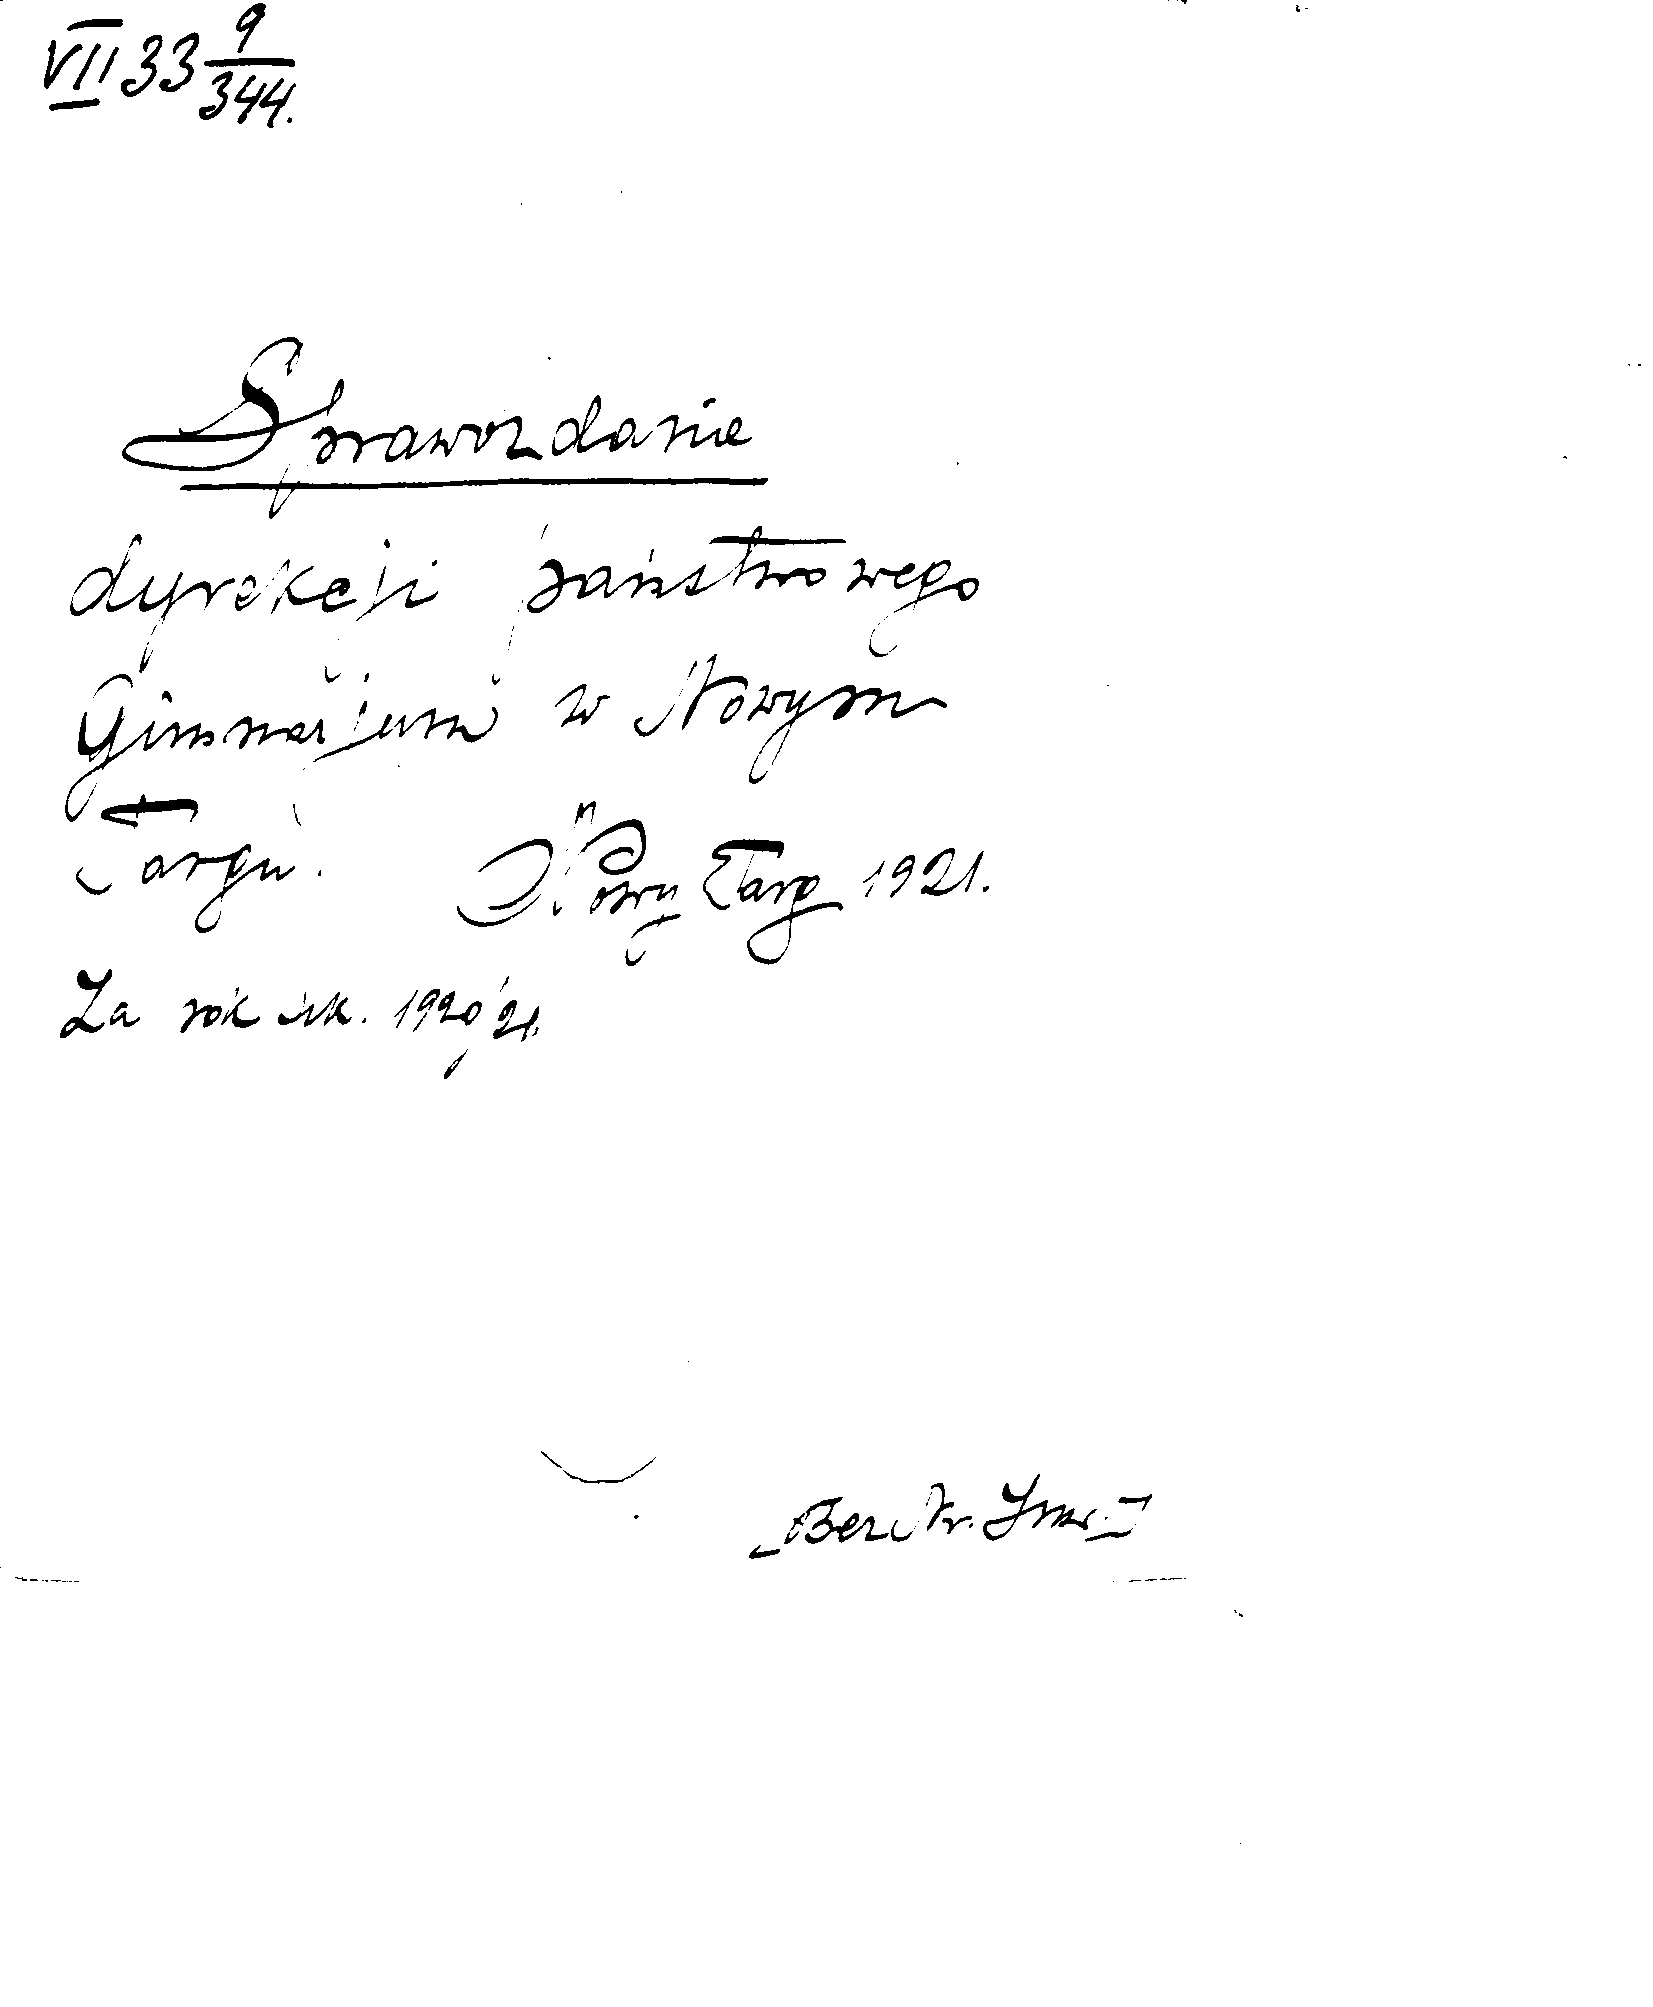 VII 33 9/344.
Sprawozdanie
dyrekcji państwowego
Gimnazjum w Nowym
Targu. Nowy Targ 1921.
Za rok szk. 1920/21.
Bez Nr. Inw.